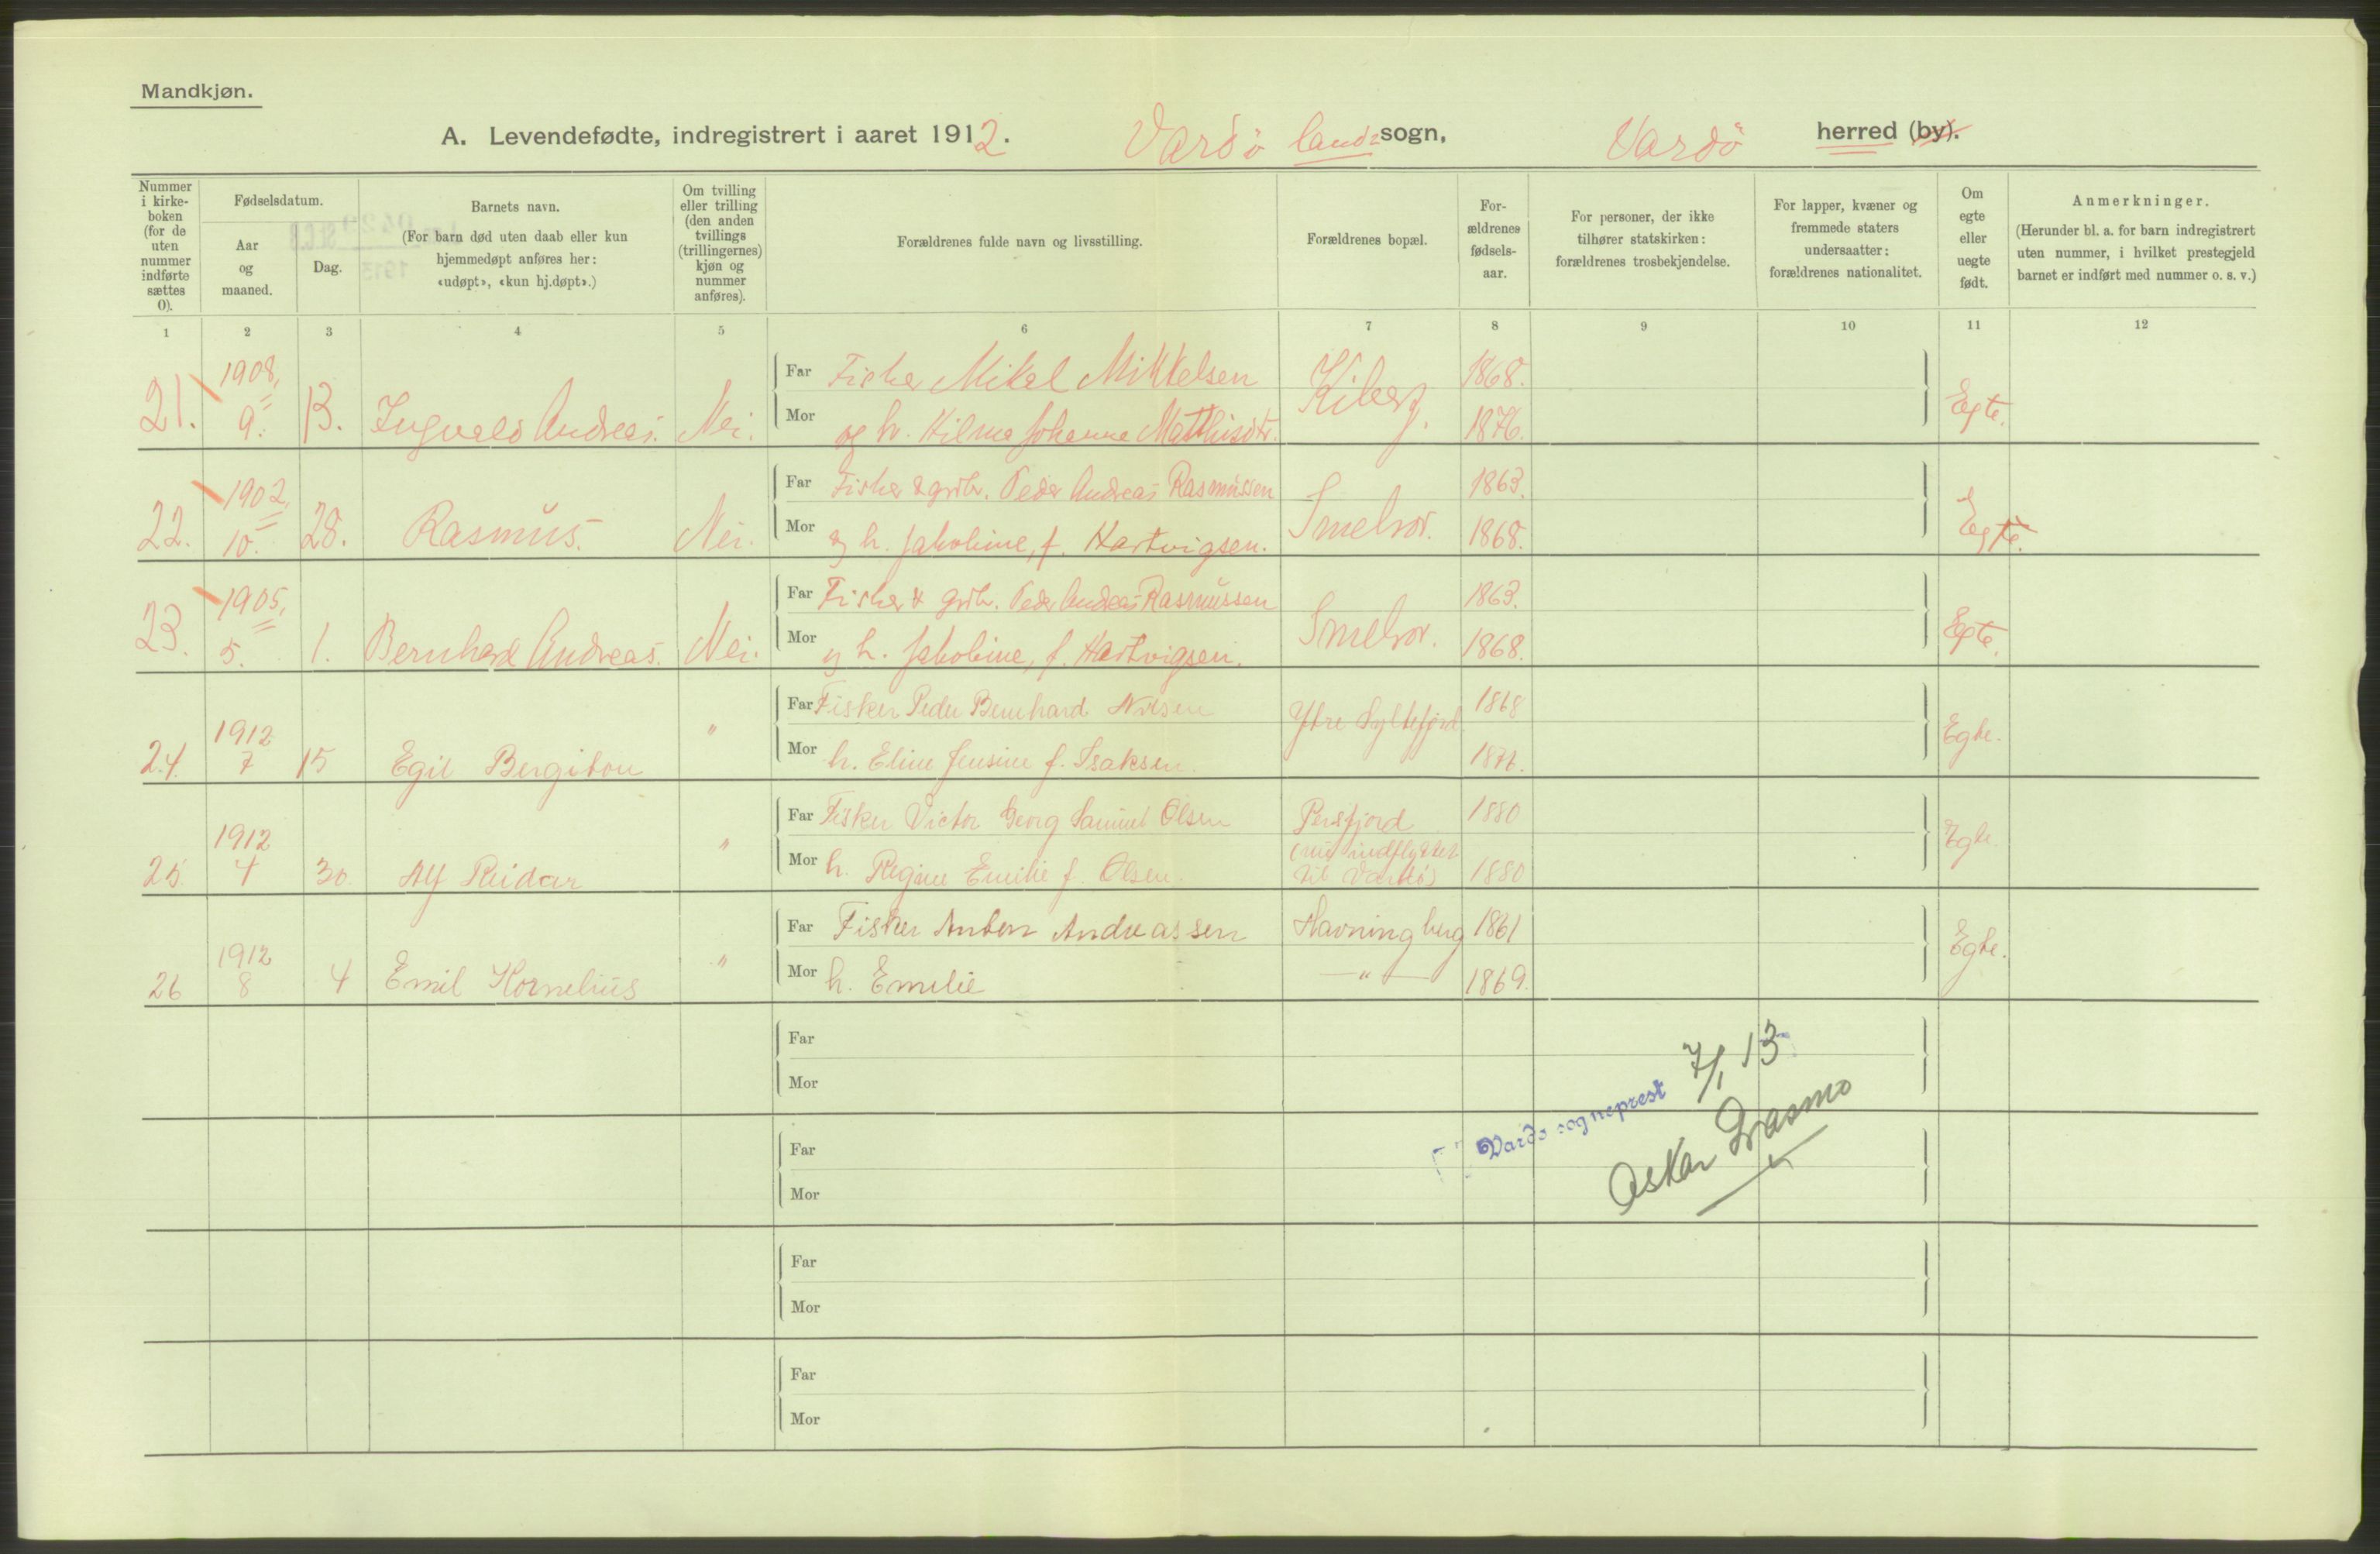 Mandkjøn.
A. Levendefødte, indregistrert i aaret 1912. Vardö lands sogn, Vardö herred (by).
Nummer i kirke-boken (for de uten nummer indførte sættes 0).
Fødselsdatum.
Aar og maaned.
Dag.
Barnets navn.
(For barn død uten daab eller kun hjemmedøpt anføres her: «udøpt», «kun hj.døpt».)
Om tvilling eller trilling (den anden tvillings (trillingernes) kjøn og nummer anføres).
Forældrenes fulde navn og livsstilling.
Forældrenes bopæl.
For-ældrenes fødsels-aar.
For personer, der ikke tilhører statskirken: forældrenes trosbekjendelse.
For lapper, kvæner og fremmede staters undersaatter: forældrenes nationalitet.
Om egte eller uegte født.
Anmerkninger.
(Herunder bl. a. for barn indregistrert uten nummer, i hvilket prestegjeld barnet er indført med nummer o. s. v.)
1 2 3 4 5 6 7 8 9 10 11 12
21. 1908, 9. 13. Ingvald Andreas. Nei.
Far Fisker Mikal Mikkelsen Kiberg. 1868. Egte.
Mor og h. Hilma Johanna Matthisdtr. 1876.
22. 1902, 10. 28. Rasmus. Nei.
Far Fisker & grdbr. Peder Andreas Rasmussen Smelror. 1863. Egte.
Mor og h. Jakobine, f. Hartvigsen. 1868.
23. 1905, 5. 1. Bernhard Andreas. Nei.
Far Fisker & grdbr. Peder Andreas Rasmussen Smelror. 1863. Egte.
Mor og h. Jakobine, f. Hartvigsen. 1868.
24. 1912 7 15 Egil Bergiton "
Far Fisker Peder Bernhard Nilsen Ytre Syltefjord. 1868 Egte.
Mor h. Eline Jensine f. Isaksen.
25. 1912 4 30. Alf Reidar "
Far Fisker Victor Georg Samuel Olsen Persfjord 1880 Egte.
Mor h. Regine Emilie f. Olsen. (nu indflyttet til Vardö) 1880
26 1912 8 4 Emil Kornelius "
Far Fisker Anton Andreassen Havningberg 1861 Egte.
Mor h. Emelie —"— 1869.
Far
Mor
7/1 13
Vardø sogneprest
Far
Mor
Oskar
Far
Mor
Far
Mor